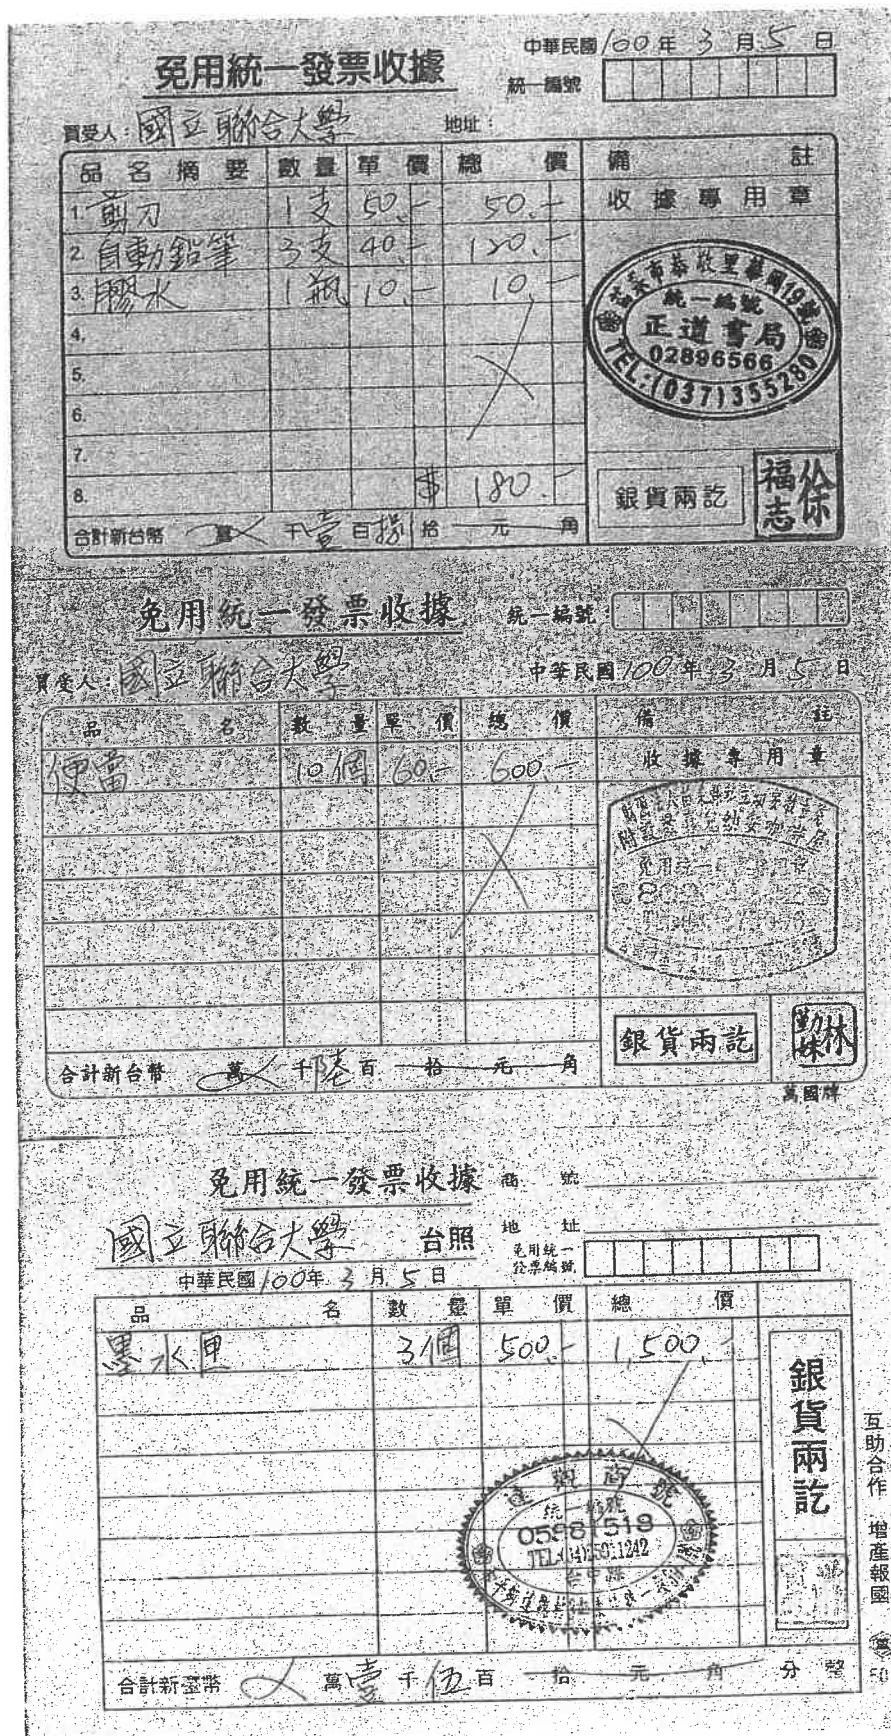 免用統一發票收據
中華民國100年3月5日
統一編號
買受人：國立聯合大學 地址：
品名摘要 數量 單價 總價 備註
收據專用章
1. 剪刀 1支 50.- 50.-
2. 自動鉛筆 3支 40.- 120.-
3. 膠水 1瓶 10.- 10.-
4.
5.
6.
7.
8. $ 180.-
苗栗市恭敬里 19號
統一編號
正道書局
02896566
TEL:(037)355280
銀貨兩訖
徐福志
合計新台幣 萬 千壹百捌拾 元 角
免用統一發票收據 統一編號：
買受人：國立聯合大學 中華民國100年3月5日
品名 數量 單價 總價 備註
收據專用章
便當 10個 60.- 600.-
免用統一
銀貨兩訖
林勤妹
合計新台幣 萬 千陸百 拾 元 角
萬國牌
免用統一發票收據 商號
國立聯合大學 台照 地址
免用統一發票編號
中華民國100年3月5日
品名 數量 單價 總價
墨水匣 3個 500.- 1,500.-
銀貨兩訖
達觀商號
統一編號
TEL:(04)25911242
台中縣
互助合作 增產報國
合計新臺幣 萬壹千伍百 拾 元 角 分 整